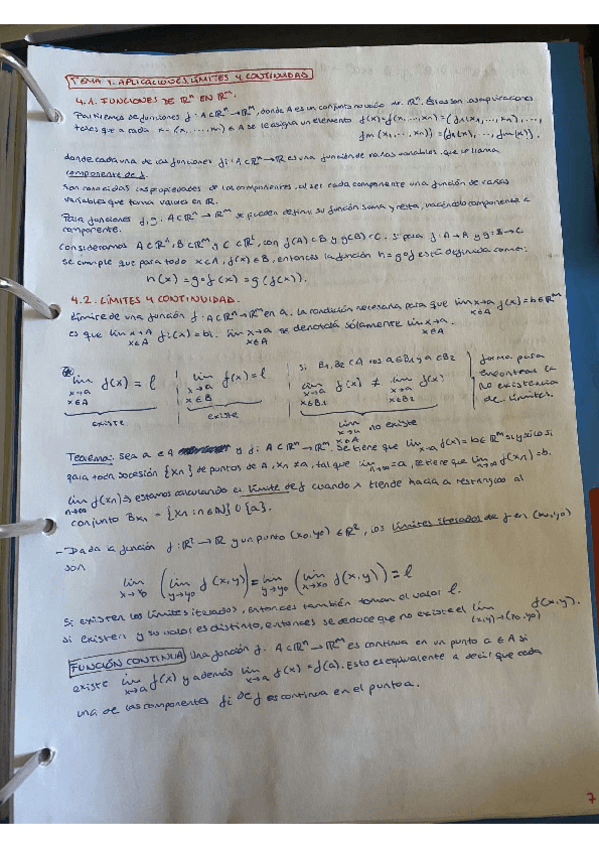 TEMA 4. APLICACIONES, LÍMITES Y CONTINUIDAD
4.1. FUNCIONES DE ℝⁿ EN ℝᵐ.
funciones f: A⊂ℝⁿ→ℝᵐ, donde A es un conjunto no vacío de ℝⁿ. Estas son aplicaciones
tales que a cada x=(x₁,...,xₙ) ∈ A se le asigna un elemento f(x)=f(x₁,...,xₙ)=(f₁(x₁,...,xₙ),...,
fm(x₁,...,xₙ))=(f₁(x),...,fm(x)).
donde cada una de las funciones fi: A⊂ℝⁿ→ℝ es una función de varias variables, que se llama
componente de f.
Son conocidas las propiedades de las componentes, al ser cada componente una función de varias
variables que toma valores en ℝ.
Para funciones f, g: A⊂ℝⁿ→ℝᵐ se pueden definir su función suma y resta, haciéndolo componente a
componente.
Consideramos A⊂ℝⁿ, B⊂ℝᵐ y C⊂ℝᵖ, con f(A)⊂B y g(B)⊂C. Si para f: A→B y g: B→C
se cumple que para todo x∈A, f(x)∈B, entonces la función h=g∘f está definida como:
h(x)=g∘f(x)=g(f(x)).
4.2. LÍMITES Y CONTINUIDAD.
Límite de una función f: A⊂ℝⁿ→ℝᵐ en a. La condición necesaria para que lim x→a f(x)=b∈ℝᵐ
x∈A
es que lim x→a fi(x)=bi. lim x→a se denotará sólamente lim x→a.
x∈A x∈A
lim f(x)=l lim f(x)=l Si B₁,B₂⊂A con a∈B₁ y a∈B₂ forma para
x→a x→a lim f(x) ≠ lim f(x) encontrar la
x∈A x∈B x∈B₁ x∈B₂ no existencia
existe existe lim no existe de límites.
x→a
x∈A
Teorema: sea a∈A y f: A⊂ℝⁿ→ℝᵐ. Se tiene que lim x→a f(x)=b∈ℝᵐ si y sólo si
para toda sucesión {xn} de puntos de A, xn≠a, tal que lim n→∞ =a, se tiene que lim n→∞ f(xn)=b.
lim f(xn) → estamos calculando el límite de f cuando x tiende hacia a restringido al
n→∞
conjunto Bxn = {xn: n∈ℕ} ∪ {a}.
- Dada la función f: ℝ²→ℝ y un punto (x₀,y₀)∈ℝ², los límites iterados de f en (x₀,y₀)
son
lim x→x₀ (lim y→y₀ f(x,y)) = lim y→y₀ (lim x→x₀ f(x,y)) = l
Si existen los límites iterados, entonces también toman el valor l.
si existen y su valor es distinto, entonces se deduce que no existe el lim (x,y)→(x₀,y₀) f(x,y).
FUNCIÓN CONTINUA Una función f: A⊂ℝⁿ→ℝᵐ es continua en un punto a∈A si
existe lim x→a f(x) y además lim x→a f(x)=f(a). Esto es equivalente a decir que cada
una de las componentes fi de f es continua en el punto a.
7